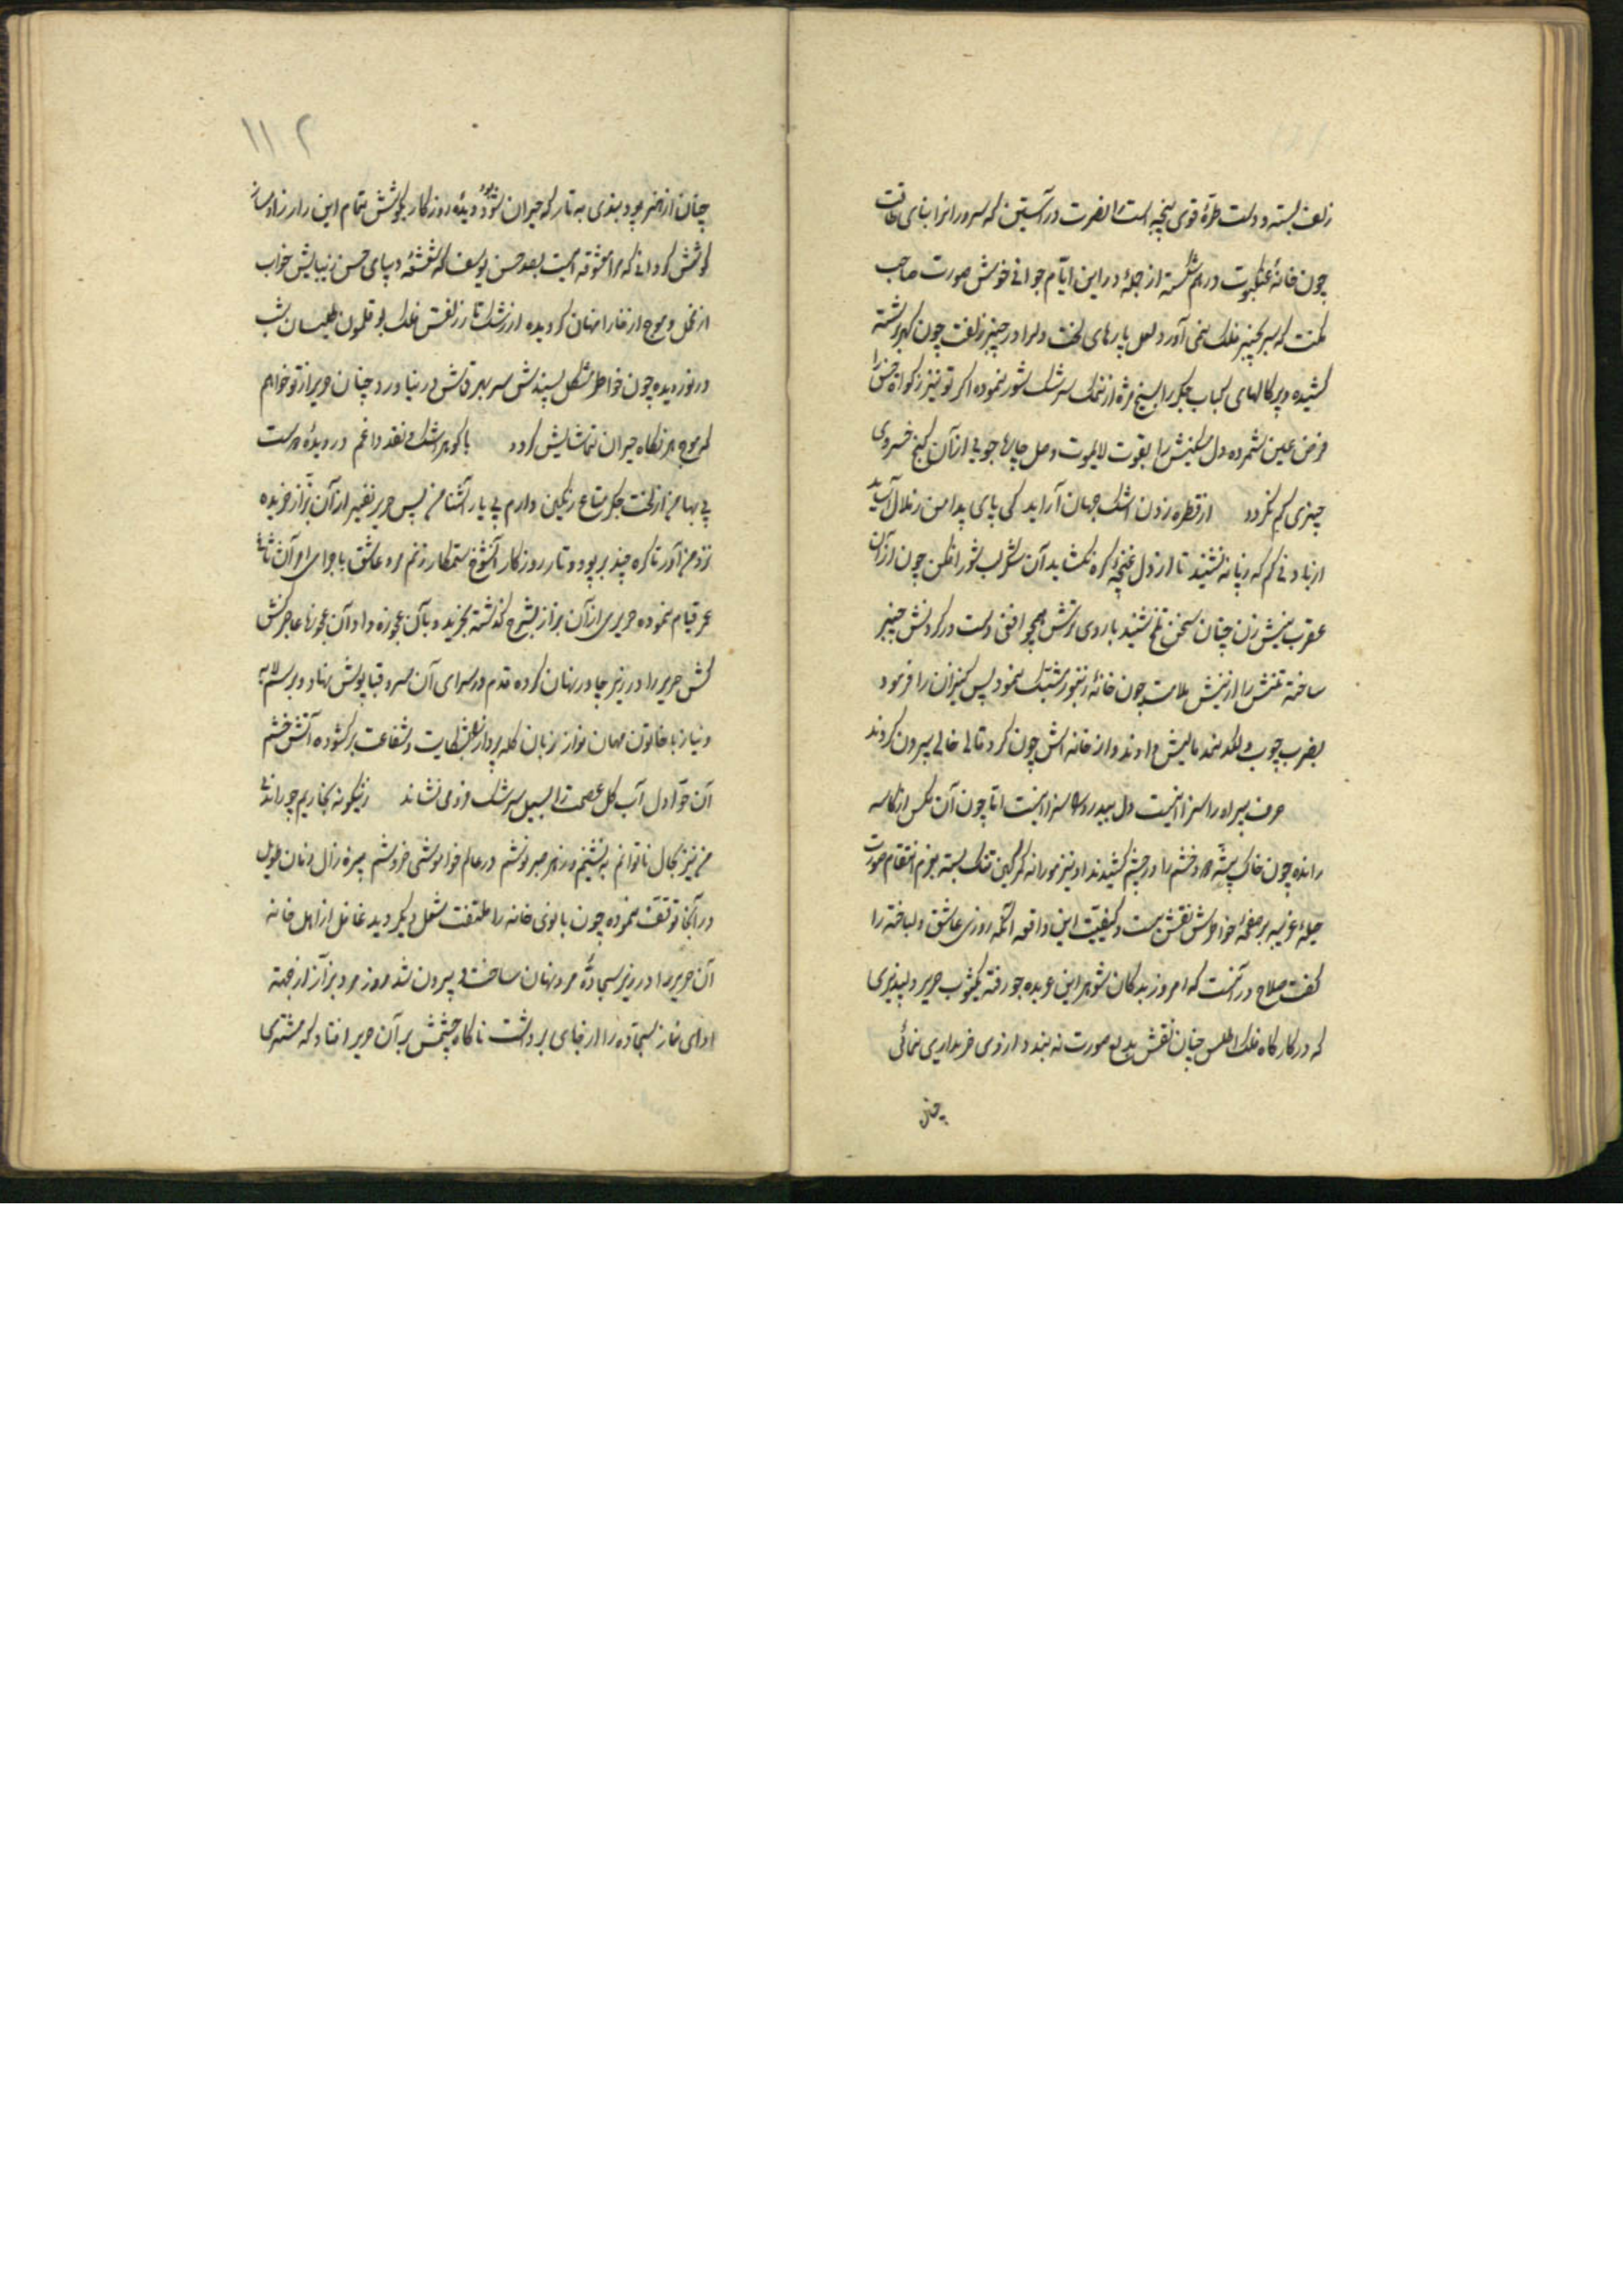 زلف بسته و دست طرهٔ قوی پنجه است را نصرت در آستین که سرو را نزا بنای طاقت
چون خانهٔ عنکبوت در هم شکسته از جمله در این ایام جوانی خوش صورت صاحب
مکنت که سر بچنبر فلک نمی آورد لعل پارهای لخت دلرا در چنبر زلفت چون گهر برشته
کشیده و پرکالهای کباب جکر را بسیخ مژه از نمک سرشک شور نموده اکر تو نیز زکواة حسن را
فرض عین شمرده دل مسکینش را بقوت لایموت وصل چاره جویی از آن کنج خسروی
چیزی کم نکردد از قطره زدن اشک جهان آراید کی پای بدامن زلال آساید
از باد نی کم که دنانه نشیند تا از دل غنچه کره نکشاید آن شکر لب شور افکن چون از آن
عقرب نیش زن چنان سخن تلخ شنید با روی ترش همچو افعی دست در کردنش چنبر
ساخته تنش را از نیش ملامت چون خانهٔ زنبور مشبک نمود پس کنیزان را فرمود
بضرب چوب و لکد نمد مالیش دادند و از خانه اش چون کرد قالی خالی بیرون کردند
حرف پیراه را سزا اینست دل بیدرد را سزا اینست اما چون آن مکس از کاسه
رانده چون خاک پشه در و خشم را در چشم کشیدند او نیز مورانه کمر کین تنک بسته بعزم انتقام صورت
حیلهٔ غریبه بر صفحهٔ خواهش نقش بست و کیفیت این واقعه آنکه روزی عاشق دلباخته را
کفت صلاح در آنست که امروز بدکان شوهر این عربده جو رفته یکثوب حریر دلپذیری
که در کارکاه فلک اطلس چنان نقش بدیع صورت نه بندد از وی خریداری نمائی
چنان
۱۱۲
چنان از هنر پود بندی به تار که حیران شود دیدهٔ روزکار بکوشش تمام این راز را رسان
کوشش کردانی که مرا معشوقه ایست بعد حسن یوسف که شعشعهٔ دیبای حسن زیبایش خواب
از مخمل و موج از خارا نهان کردیده از رشک تار زلفش فلک بوقلمون طیلسان شب
در نوردیده چون خواطر مشکل پسندش سر بهر قماش در نیاورد چنان حریر از تو خواهم
که موج بر نکاه حیران تماشایش کردد با کوهر اشک و نقد داغم در دیدهٔ درست
پی بها من از لخت جکر متاع رنکین دارم پی یار آشنا من پس حریر نفیس از آن بزاز خریده
نزد من آور تا کره چند بر پود و تار روزکار آنشوخ ستمکار زنم مرد عاشق باجرای امر آن ثانی
عمر قیام نموده حریری از آن بزاز بشرح کذشته بخرید و بآن عجوزه داد آن عجوزه عاجر کش
کش حریر را در زیر چادر نهان کرده قدم در سرای آن سرو قباپوش نهاد و بر سلام
و نیاز با خاتون مهمان نواز زبان کله پرداز شکایت و شفاعت برکشوده آتش خشم
آن حوا دل آب کل عصمت را بسیل سرشک فرو می نشاند زنیکونه بخاریم چو راندی
من نیز بحال ناتوانم بنشینم و زهر صبر نوشم در عالم خواموشی خروشم پیره زال دنان طویل
در آنجا توقف نموده چون بانوی خانه را ملتفت شغل دیکر دید غافل از اهل خانه
آن حریر را در زیر سجادهٔ مرد نهان ساخت و بیرون شد روز مرد بزاز از جهة
ادای نماز سجاده را از جای برداشت ناکاه چشمش بر آن حریر افتاد که مشتری